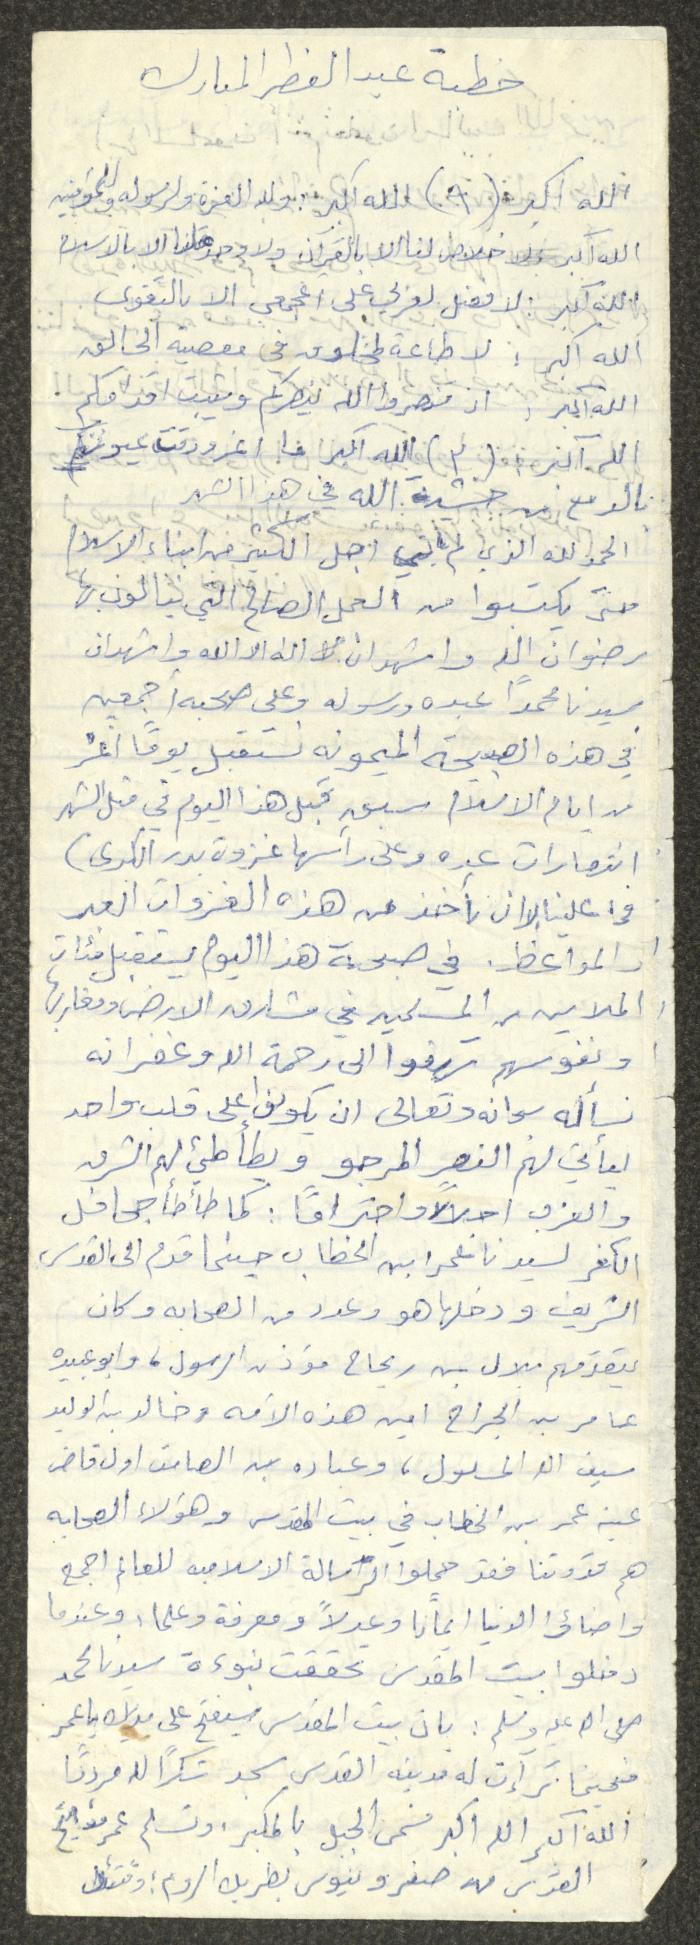 خطبة عيد الفطر المبارك
الله اكبر: (٩) الله اكبر: ولله العزة ولرسوله وللمؤمنين
الله اكبر ولا خلاص لنا الا بالقرآن ولا وحدة لنا الا بالاسلام
الله اكبر: لا فضل لعربي على اعجمي الا بالتقوى
الله اكبر: لا طاعة لمخلوق في معصية الخالق
الله اكبر: ان تنصروا الله ينصركم ويثبت اقدامكم
الله اكبر: (٣) الله اكبر ما اغرورقت عيونكم
بالدمع من خشية الله في هذا الشهر
الحمد لله الذي لم اجل الكثير من ابناء الاسلام
حتى يكتسبوا من العمل الصالح التي ينالون بها
رضوان الله واشهد ان لا اله الا الله واشهد ان
سيدنا محمدًا عبده ورسوله وعلى صحبه أجمعين
في هذه الصبيحة الميمونه نستقبل يومًا أغر
من ايام الاسلام سبق قبل هذا اليوم في مثل الشهر
انتصارات عده وعلى رأسها غزوة بدر الكبرى)
فما علينا الا ان نأخذ من هذه الغزوات العبر
والمواعظ. في صبحية هذا اليوم يستقبل مئات
الملايين من المسلمين في مشارق الارض ومغاربها
ونفوسهم ترفوا الى رحمة الله وغفرانه
نسأله سبحانه وتعالى ان يكونوا على قلب واحد
ليأتي لهم النصر المرجو ويطأطئ لهم الشرق
والغرب اجلالاً واحترامًا: كما طأطأ جحافل
الكفر لسيدنا عمر ابن الخطاب حينما قدم الى القدس
الشريف ودخلها هو وعدد من الصحابه وكان
يتقدمهم بلال بن رباح مؤذن الرسول، وابو عبيده
عامر بن الجراح امين هذه الأمه وخالد بن الوليد
سيف الله المسلول، وعباده بن الصامت اول قاض
عينه عمر بن الخطاب في بيت المقدس وهؤلاء الصحابه
هم قدوتنا فقد حملوا الرسالة الاسلاميه للعالم اجمع
واضائوا الدنيا ايمانًا وعدلاً ومعرفة وعلما، وعندما
دخلوا بيت المقدس تحققت نبوءة سيدنا محمد
صلى الله عليه وسلم: بان بيت المقدس سيفتح على يديك يا عمر
فحينما تراءت له مدينه القدس سجد شكرًا لله مرددًا
الله اكبر الله اكبر فسمى الجبل بالمكبر، وتسلم عمر مفاتيح
القدس من صفرونيوس بطريك الروم: